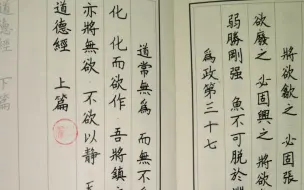 將欲歙之 必固張
欲廢之 必固興之 將欲
弱勝剛强 魚不可脫於
為政第三十七
道常無為 而無不
化 化而欲作 吾將鎮之
亦將無欲 不欲以靜
道德經 上篇
道德經 下篇